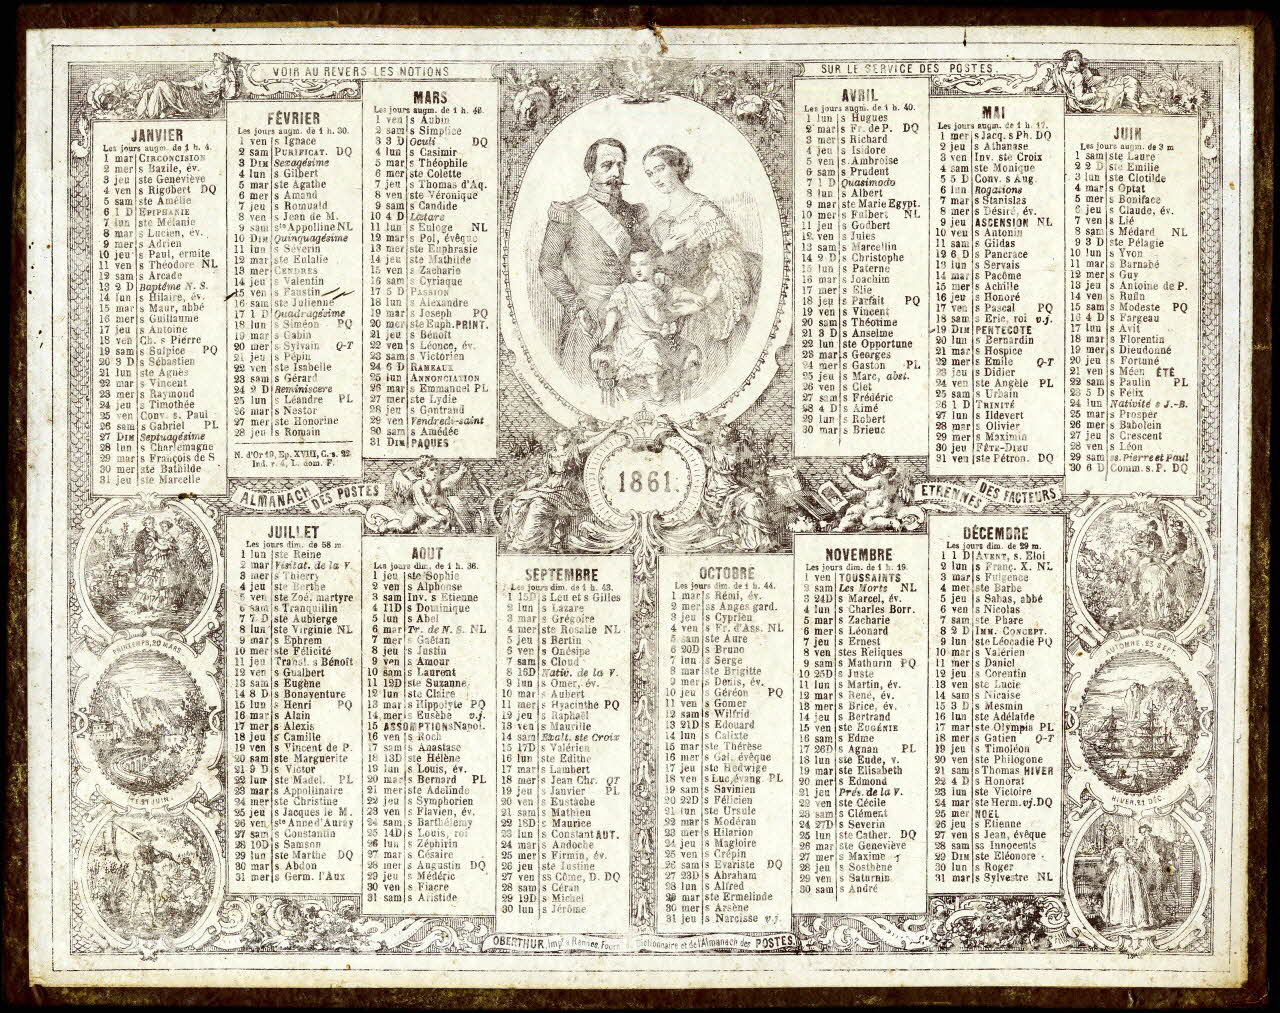 VOIR AU REVERS LES NOTIONS
SUR LE SERVICE DES POSTES
JANVIER
Les jours augm. de 1 h. 4.
1 mar CIRCONCISION
2 mer s Bazile, év.
3 jeu ste Geneviève
4 ven s Rigobert DQ
5 sam ste Amélie
6 1 D EPIPHANIE
7 lun ste Mélanie
8 mar s Lucien, év.
9 mer s Adrien
10 jeu s Paul, ermite
11 ven s Théodore NL
12 sam s Arcade
13 2 D Baptême N. S.
14 lun s Hilaire, év.
15 mar s Maur, abbé
16 mer s Guillaume
17 jeu s Antoine
18 ven Ch. s Pierre
19 sam s Sulpice PQ
20 3 D s Sébastien
21 lun ste Agnès
22 mar s Vincent
23 mer s Raymond
24 jeu s Timothée
25 ven Conv. s. Paul
26 sam s Gabriel PL
27 DIM Septuagésime
28 lun s Charlemagne
29 mar s François de S
30 mer ste Bathilde
31 jeu ste Marcelle
FÉVRIER
Les jours augm. de 1 h. 30.
1 ven s Ignace
2 sam PURIFICAT. DQ
3 DIM Sexagésime
4 lun s Gilbert
5 mar ste Agathe
6 mer s Amand
7 jeu s Romuald
8 ven s Jean de M.
9 sam ste Appolline NL
10 DIM Quinquagésime
11 lun s Séverin
12 mar ste Eulalie
13 mer CENDRES
14 jeu s Valentin
15 ven s Faustin
16 sam ste Julienne
17 1 D Quadragésime
18 lun s Siméon PQ
19 mar s Gabin
20 mer s Sylvain Q-T
21 jeu s Pépin
22 ven ste Isabelle
23 sam s Gérard
24 2 D Reminiscere
25 lun s Léandre PL
26 mar s Nestor
27 mer ste Honorine
28 jeu s Romain
N. d'Or 19, Ep. XVIII, C. s. 22
Ind. r. 4, L. dom. F.
MARS
Les jours augm. de 1 h. 48.
1 ven s Aubin
2 sam s Simplice
3 3 D Oculi DQ
4 lun s Casimir
5 mar s Théophile
6 mer ste Colette
7 jeu s Thomas d'Aq.
8 ven ste Véronique
9 sam s Candide
10 4 D Lætare
11 lun s Euloge NL
12 mar s Pol, évêque
13 mer ste Euphrasie
14 jeu ste Mathilde
15 ven s Zacharie
16 sam s Cyriaque
17 5 D PASSION
18 lun s Alexandre
19 mar s Joseph PQ
20 mer ste Euph. PRINT.
21 jeu s Benoît
22 ven s Léonce, év.
23 sam s Victorien
24 6 D RAMEAUX
25 lun ANNONCIATION
26 mar s Emmanuel PL
27 mer ste Lydie
28 jeu s Gontrand
29 ven Vendredi-saint
30 sam s Amédée
31 DIM PAQUES
AVRIL
Les jours augm. de 1 h. 40.
1 lun s Hugues
2 mar s Fr. de P. DQ
3 mer s Richard
4 jeu s Isidore
5 ven s. Ambroise
6 sam s Prudent
7 1 D Quasimodo
8 lun s Albert
9 mar ste Marie Egypt.
10 mer s Fulbert NL
11 jeu s Godbert
12 ven s Jules
13 sam s Marcellin
14 2 D s Christophe
15 lun s Paterne
16 mar s Joachim
17 mer s Elie
18 jeu s Parfait PQ
19 ven s Vincent
20 sam s Théotime
21 3 D s Anselme
22 lun ste Opportune
23 mar s Georges
24 mer s Gaston PL
25 jeu s Marc, abst.
26 ven s Clet
27 sam s Frédéric
28 4 D s Aimé
29 lun s Robert
30 mar s Brieuc
MAI
Les jours augm. de 1 h. 17.
1 mer s Jacq. s Ph. DQ
2 jeu s Athanase
3 ven Inv. ste Croix
4 sam ste Monique
5 5 D Conv. s Aug.
6 lun Rogations
7 mar s Stanislas
8 mer s Désiré, év.
9 jeu ASCENSION NL
10 ven s Antonin
11 sam s Gildas
12 6 D s Pancrace
13 lun s Servais
14 mar s Pacôme
15 mer s Achille
16 jeu s Honoré
17 ven s Pascal PQ
18 sam s Eric, roi v.j.
19 DIM PENTECOTE
20 lun s Bernardin
21 mar s Hospice
22 mer s Emile Q-T
23 jeu s Didier
24 ven ste Angèle PL
25 sam s Urbain
26 1 D TRINITÉ
27 lun s Ildevert
28 mar s Olivier
29 mer s Maximin
30 jeu FÊTE-DIEU
31 ven ste Pétron. DQ
JUIN
Les jours augm. de 3 m
1 sam ste Laure
2 2 D ste Emilie
3 lun ste Clotilde
4 mar s Optat
5 mer s Boniface
6 jeu s Claude, év.
7 ven s Lié
8 sam s Médard NL
9 3 D ste Pélagie
10 lun s Yvon
11 mar s Barnabé
12 mer s Guy
13 jeu s Antoine de P.
14 ven s Rufin
15 sam s Modeste PQ
16 4 D s Fargeau
17 lun s Avit
18 mar s Florentin
19 mer s Dieudonné
20 jeu s Fortuné
21 ven s Méen ÉTÉ
22 sam s Paulin PL
23 5 D s Felix
24 lun Nativité s J.-B.
25 mar s Prosper
26 mer s Babolein
27 jeu s Crescent
28 ven s Léon
29 sam ss. Pierre et Paul
30 6 D Comm. s. P. DQ
1861.
ALMANACH DES POSTES
ETRENNES DES FACTEURS
JUILLET
Les jours dim. de 58 m.
1 lun ste Reine
2 mar Visitat. de la V.
3 mer s Thierry
4 jeu ste Berthe
5 ven ste Zoé, martyre
6 sam s Tranquilin
7 7 D ste Aubierge
8 lun ste Virginie NL
9 mar s Ephrem
10 mer ste Félicité
11 jeu Transl. s Benoît
12 ven s Gualbert
13 sam s Eugène
14 8 D s Bonaventure
15 lun s Henri PQ
16 mar s Alain
17 mer s Alexis
18 jeu s Camille
19 ven s Vincent de P.
20 sam ste Marguerite
21 9 D s Victor
22 lun ste Madel. PL
23 mar s Appollinaire
24 mer ste Christine
25 jeu s Jacques le M.
26 ven ste Anne d'Auray
27 sam s Constantin
28 10D s Samson
29 lun ste Marthe DQ
30 mar s Abdon
31 mer s Germ. l'Aux
AOUT
Les jours dim. de 1 h. 36.
1 jeu ste Sophie
2 ven s Alphonse
3 sam Inv. s Etienne
4 11D s Dominique
5 lun s Abel
6 mar Tr. de N. S. NL
7 mer s Gaëtan
8 jeu s Justin
9 ven s Amour
10 sam s Laurent
11 12D ste Suzanne
12 lun ste Claire
13 mar s Hippolyte PQ
14 mer s Eusèbe v.j.
15 ASSOMPTION s Napol.
16 ven s Roch
17 sam s Anastase
18 13D ste Hélène
19 lun s Louis, év.
20 mar s Bernard PL
21 mer ste Adelinde
22 jeu s Symphorien
23 ven s Flavien, év.
24 sam s Barthélemy
25 14D s Louis, roi
26 lun s Zéphirin
27 mar s Césaire
28 mer s Augustin DQ
29 jeu s Médéric
30 ven s Fiacre
31 sam s Aristide
SEPTEMBRE
Les jours dim. de 1 h. 43.
1 15D s Leu et s Gilles
2 lun s Lazare
3 mar s Grégoire
4 mer ste Rosalie NL
5 jeu s Bertin
6 ven s Onésipe
7 sam s Cloud
8 16D Nativ. de la V.
9 lun s Omer, év.
10 mar s Aubert
11 mer s Hyacinthe PQ
12 jeu s Raphaël
13 ven s Maurille
14 sam Exalt. ste Croix
15 17D s Valérien
16 lun ste Edithe
17 mar s Lambert
18 mer s Jean Chr. QT
19 jeu s Janvier PL
20 ven s Eustache
21 sam s Mathieu
22 18D s Maurice
23 lun s Constant AUT.
24 mar s Andoche
25 mer s Firmin, év.
26 jeu ste Justine
27 ven ss Côme, D. DQ
28 sam s Céran
29 19D s Michel
30 lun s Jérôme
OCTOBRE
Les jours dim. de 1 h. 44.
1 mar s Rémi, év.
2 mer ss Anges gard.
3 jeu s Cyprien
4 ven s Fr. d'Ass. NL
5 sam ste Aure
6 20D s Bruno
7 lun s Serge
8 mar ste Brigitte
9 mer s Denis, év.
10 jeu s Géréon PQ
11 ven s Gomer
12 sam s Wilfrid
13 21D s Edouard
14 lun s Calixte
15 mar ste Thérèse
16 mer s Gal, évêque
17 jeu ste Hedwige
18 ven s Luc, évang. PL
19 sam s Savinien
20 22D s Félicien
21 lun ste Ursule
22 mar s Modéran
23 mer s Hilarion
24 jeu s Magloire
25 ven s Crépin
26 sam s Evariste DQ
27 23D s Abraham
28 lun s Alfred
29 mar ste Ermelinde
30 mer s Arsène
31 jeu s Narcisse v.j.
NOVEMBRE
Les jours dim. de 1 h. 19.
1 ven TOUSSAINTS
2 sam Les Morts NL
3 24D s Marcel, év.
4 lun s Charles Borr.
5 mar s Zacharie
6 mer s Léonard
7 jeu s Ernest
8 ven stes Reliques
9 sam s Mathurin PQ
10 25D s Juste
11 lun s Martin, év.
12 mar s René, év.
13 mer s Brice, év.
14 jeu s Bertrand
15 ven ste EUGÉNIE
16 sam s Edme
17 26D s Agnan PL
18 lun ste Eude, v.
19 mar ste Elisabeth
20 mer s Edmond
21 jeu Prés. de la V.
22 ven ste Cécile
23 sam s Clément
24 27D s Severin
25 lun ste Cather. DQ
26 mar ste Geneviève
27 mer s Maxime
28 jeu s Sosthène
29 ven s Saturnin
30 sam s André
DÉCEMBRE
Les jours dim. de 29 m.
1 1 D AVENT, s. Eloi
2 lun s Franç. X. NL
3 mar s Fulgence
4 mer ste Barbe
5 jeu s Sabas, abbé
6 ven s Nicolas
7 sam ste Phare
8 2 D IMM. CONCEPT.
9 lun ste Léocadie PQ
10 mar s Valérien
11 mer s Daniel
12 jeu s Corentin
13 ven ste Lucie
14 sam s Nicaise
15 3 D s Mesmin
16 lun ste Adélaïde
17 mar ste Olympia PL
18 mer s Gatien Q-T
19 jeu s Timoléon
20 ven ste Philogone
21 sam s Thomas HIVER
22 4 D s Honorat
23 lun ste Victoire
24 mar ste Herm. v.j. DQ
25 mer NOEL
26 jeu s Etienne
27 ven s Jean, évêque
28 sam ss Innocents
29 DIM ste Eléonore
30 lun s Roger
31 mar s Sylvestre NL
PRINTEMPS, 20 MARS
ÉTÉ 21 JUIN.
AUTOMNE, 23 SEPT
HIVER, 21 DÉC.
OBERTHUR, Imp. à Rennes, Fourn. du Dictionnaire et de l'Almanach des POSTES.